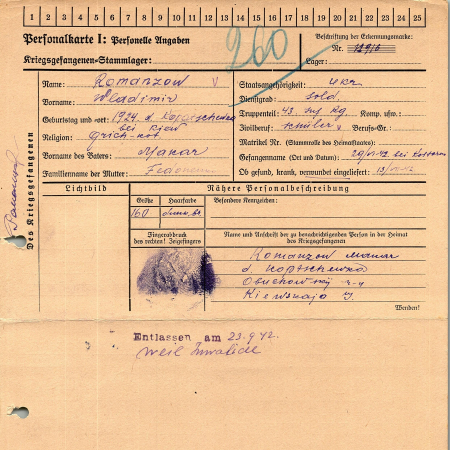 1 2 3 4 5 6 7 8 9 10 11 12 13 14 15 16 17 18 19 20 21 22 23 24 25
Personalkarte I: Personelle Angaben
Kriegsgefangenen-Stammlager:
260
Beschriftung der Erkennungsmarke
Nr.
Lager:
Des Kriegsgefangenen
Name: Romanzow
Vorname: Wladimir
Geburtstag und -ort: 1924 d.
bei Kiew
Religion: Grich-kat.
Vorname des Vaters: Makar
Familienname der Mutter:
Staatsangehörigkeit: Ukr
Dienstgrad: Sold.
Truppenteil: 43. Inf Rg Komp. usw.:
Zivilberuf: Schüler Berufs-Gr.:
Matrikel Nr. (Stammrolle des Heimatstaates):
Gefangennahme (Ort und Datum): bei
Ob gesund, krank, verwundet eingeliefert:
Lichtbild
Nähere Personalbeschreibung
Größe Haarfarbe Besondere Kennzeichen:
160
Fingerabdruck
des rechten! Zeigefingers
Name und Anschrift der zu benachrichtigenden Person in der Heimat
des Kriegsgefangenen
Romanzow Makar
d. Koptschewka
Obuchowskij
Kiewskaja
Wenden!
Entlassen am 23.9.42.
weil Invalide